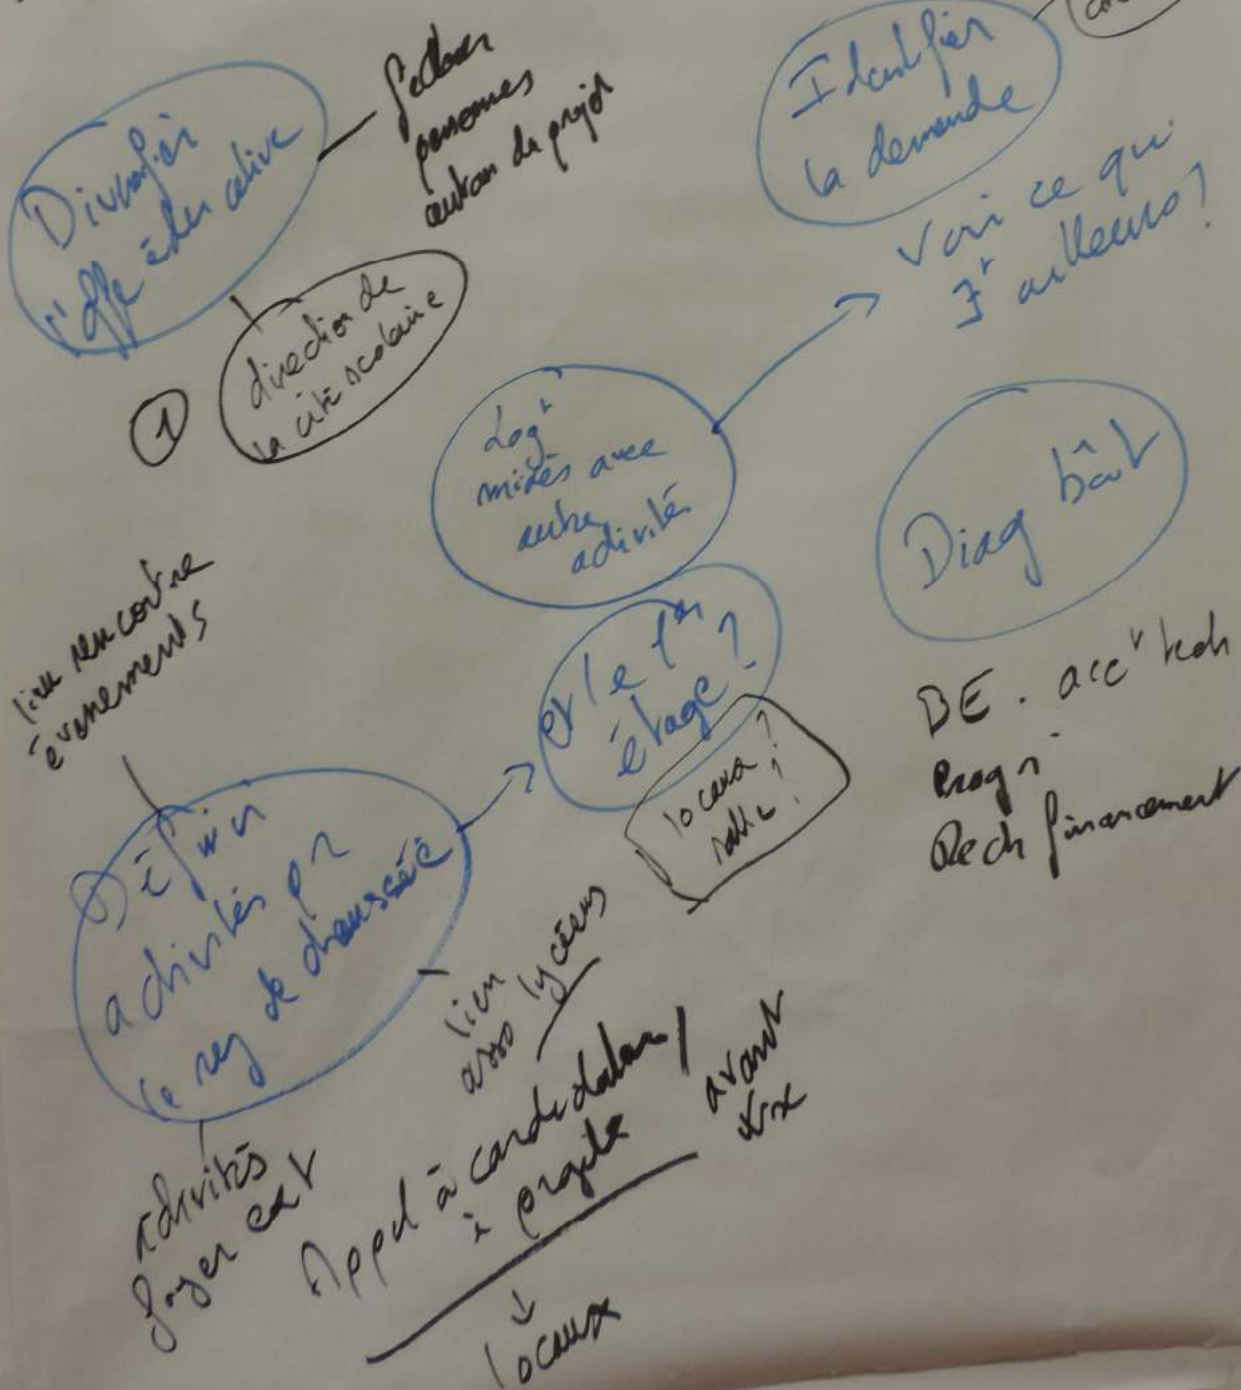 Diversifier
l'offre éducative
personnes
autour du projet
①
direction de
la cité scolaire
Identifier
la demande
Voir ce qui
ailleurs ?
Logt
mixés avec
autre
activités
Diag bât
BE. acct tech
Progr
Rech financement
et le 1er
étage ?
locaux ?
lieu rencontre
évènements
Définir
activités pr
le rez de chaussée
lien
asso lycéens
activités
foyer
Appel à candidature /
à projets
avant
trx
↓
locaux